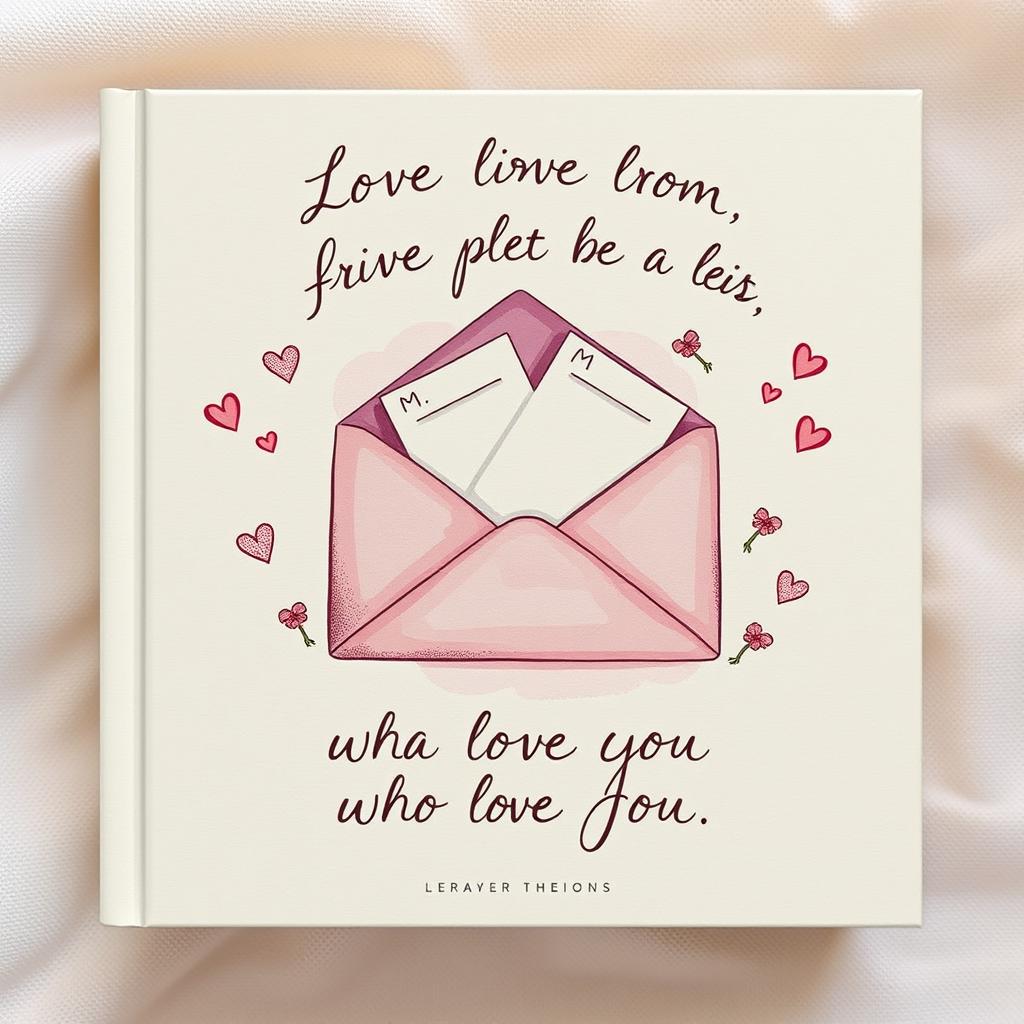 Love linve lrom,
frive plet be a leis,
M.
M
wha love you
who love you.
LERAYER THEIONS